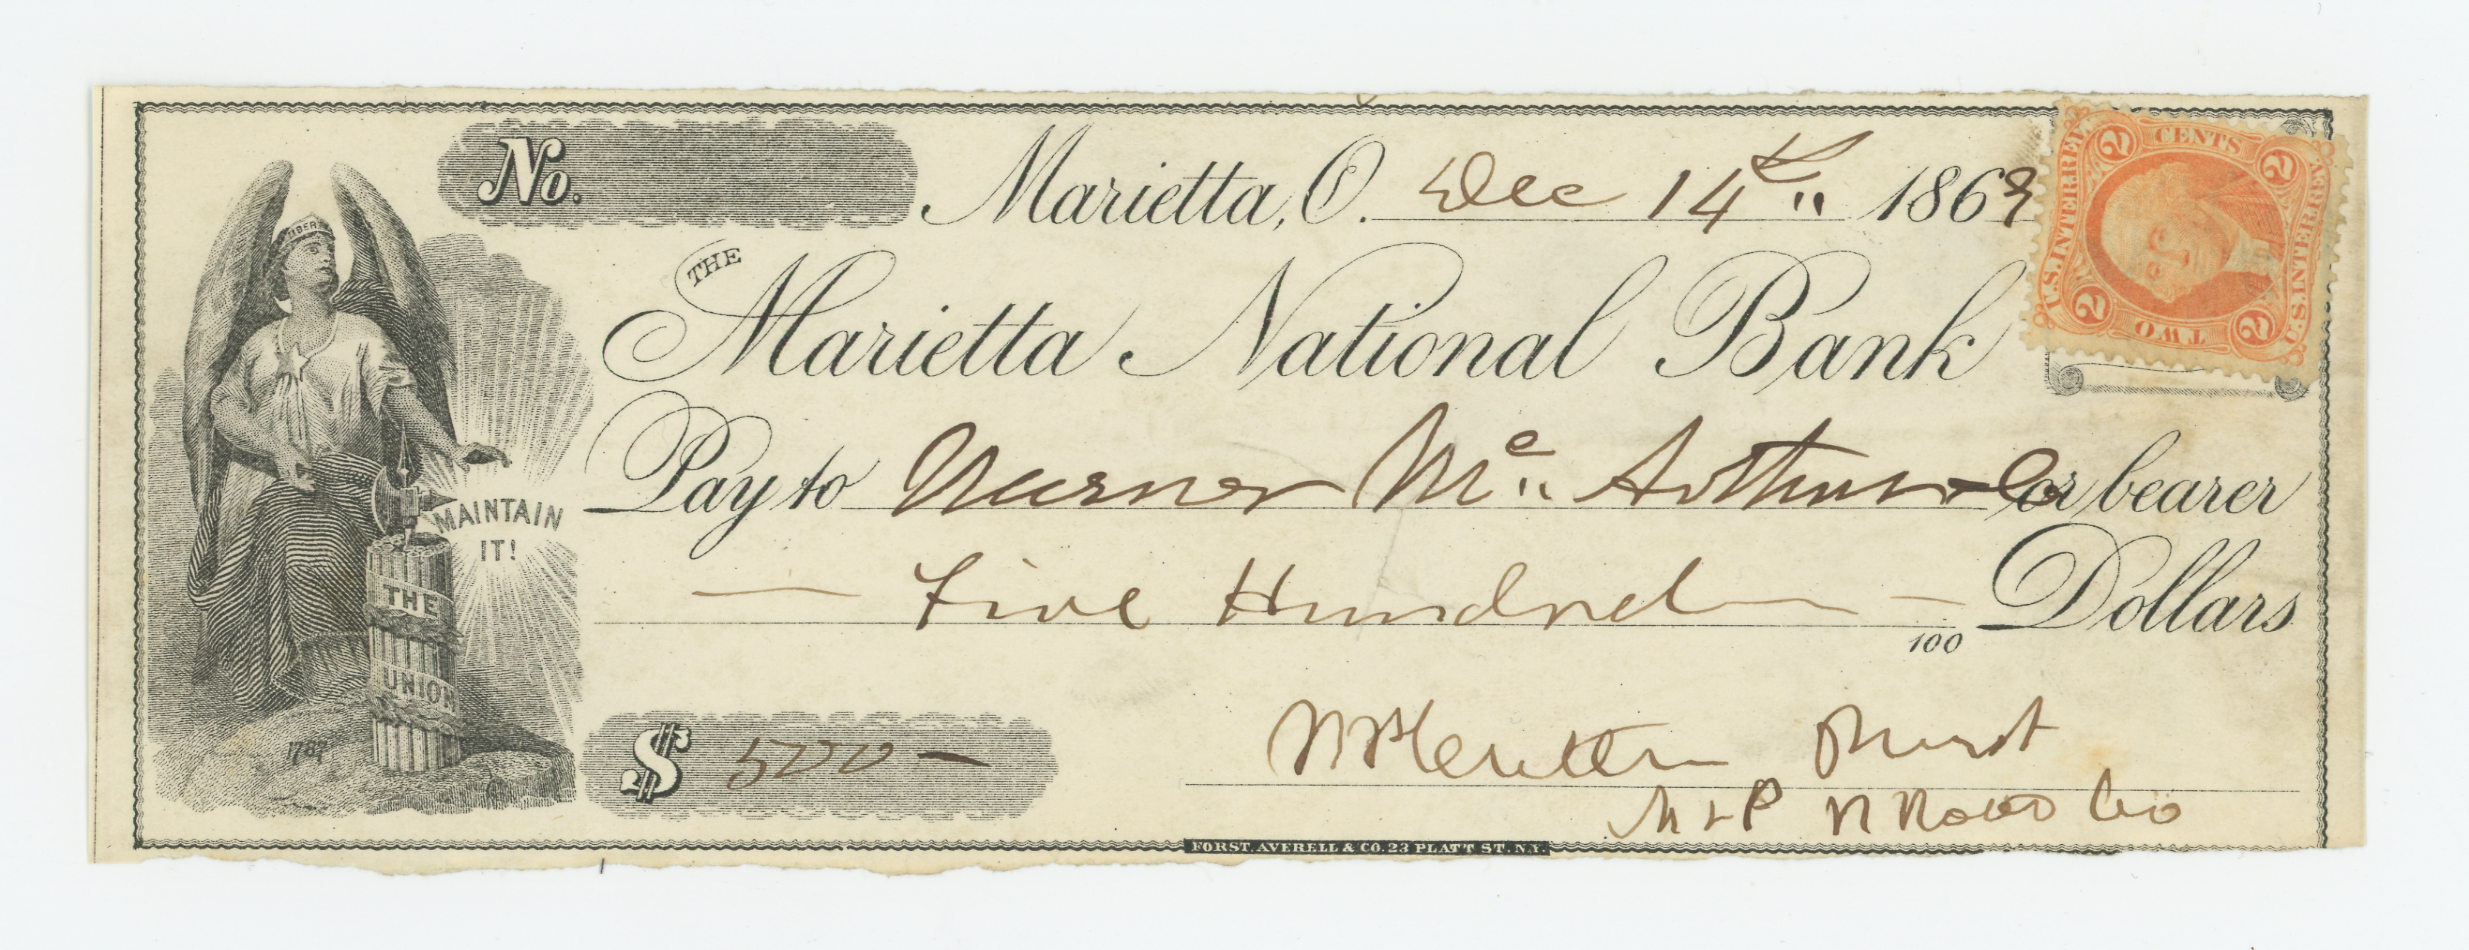 No. Marietta, O. Dec 14th 1869
THE
Marietta National Bank
Pay to Nurner Mc Arthur & Co or bearer
Five Hundred 100 Dollars
$ 500 -
Prest
M & P R Road Co
LIBERTY
MAINTAIN
IT!
THE
UNION
1787
FORST, AVERELL & CO. 23 PLATT ST. N.Y.
2 CENTS 2
U.S. INTER. REV.
U.S. INTER. REV.
2 TWO 2